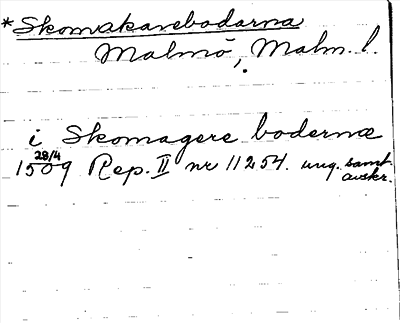 *Skomakarebodarna
Malmö, Malm. l.
i Skomagere bodernæ
28/4
1509 Rep. II nr 11254. ung. samt. avskr.